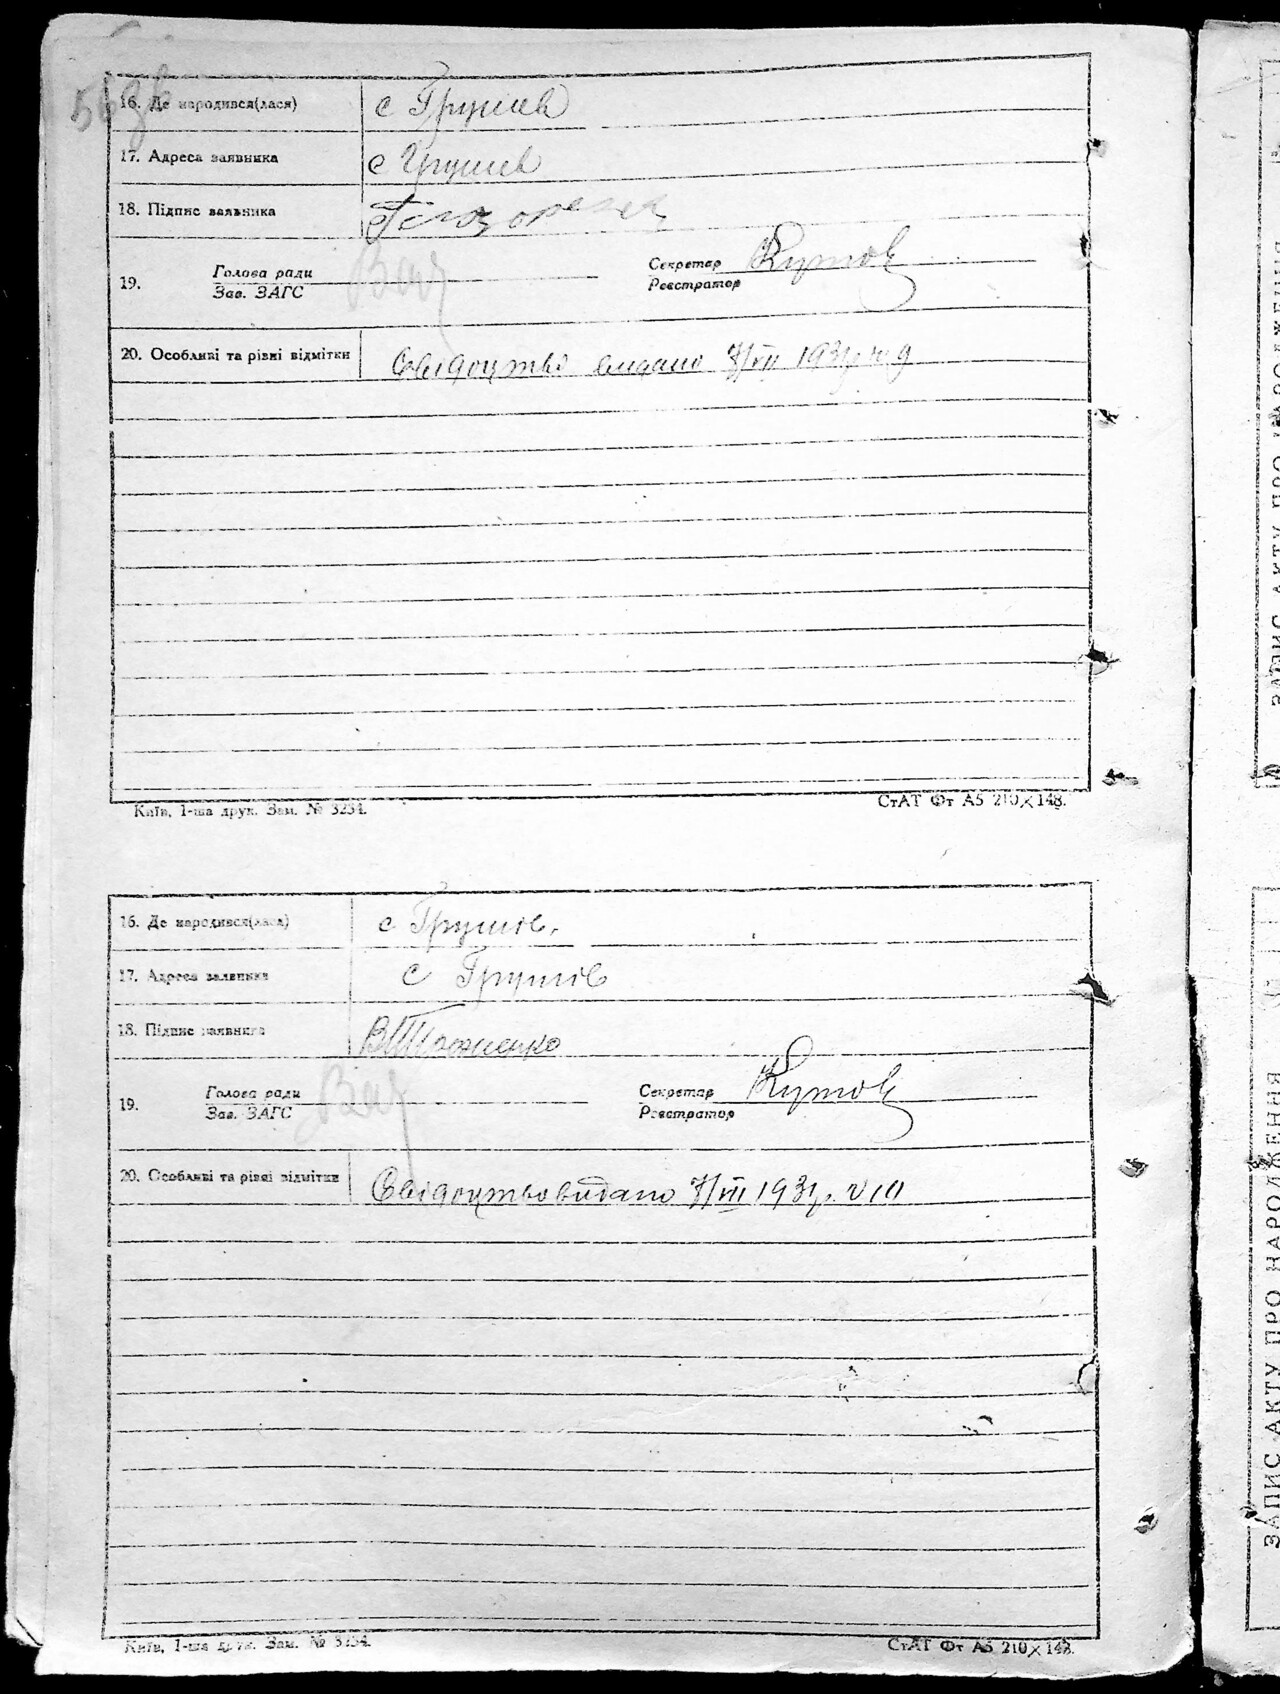 16. Де народився(лася) с Грушев
17. Адреса заявника с Грушев
18. Підпис заявника
19. Голова ради Секретар
Зав. ЗАГС Реєстратор
20. Особливі та різні відмітки Свідоцтво видано 7/VII 1931р. № 9
Київ, 1-ша друк. Зам. № 3234.
СтАТ Фт А5 210×148.
16. Де народився(лася) с Грушів.
17. Адреса заявника с Грушів
18. Підпис заявника
19. Голова ради Секретар
Зав. ЗАГС Реєстратор
20. Особливі та різні відмітки Свідоцтво видано 7/VII 1931р. №
Київ, 1-ша друк. Зам. № 3234.
СтАТ Фт А5 210×148.
ЗАПИС АКТУ ПРО НАРОДЖЕННЯ
ЗАПИС АКТУ ПРО НАРОДЖЕННЯ